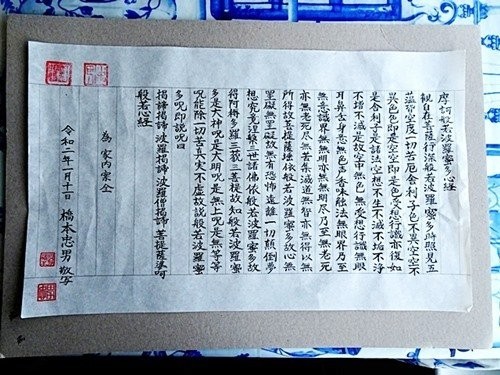 摩訶般若波羅蜜多心経
観自在菩薩行深般若波羅蜜多時照見五
蘊皆空度一切苦厄舎利子色不異空空不
異色色即是空空即是色受想行識亦復如
是舎利子是諸法空相不生不滅不垢不浄
不増不減是故空中無色無受想行識無眼
耳鼻舌身意無色声香味触法無眼界乃至
無意識界無無明亦無無明尽乃至無老死
亦無老死尽無苦集滅道無智亦無得以無
所得故菩提薩埵依般若波羅蜜多故心無
罣礙無罣礙故無有恐怖遠離一切顛倒夢
想究竟涅槃三世諸佛依般若波羅蜜多故
得阿耨多羅三藐三菩提故知般若波羅蜜
多是大神呪是大明呪是無上呪是無等等
呪能除一切苦真実不虚故説般若波羅蜜
多呪即説呪曰
揭諦揭諦 波羅揭諦 波羅僧揭諦 菩提薩婆訶
般若心経
為 家内安全
令和二年 橋本忠男 敬写